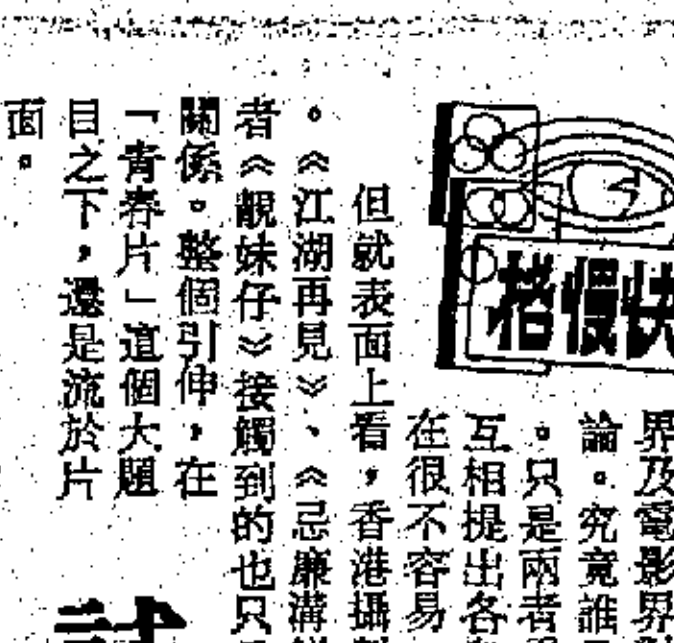 快慢格
界及電影界
論。究竟誰
。只是兩者
互相提出各
在很不容易
但就表面上看，香港攝
。《江湖再見》、《忌廉溝鮮
者《靚妹仔》接觸到的也只
關係。整個引伸，在
「青春片」這個大題
目之下，還是流於片
面。